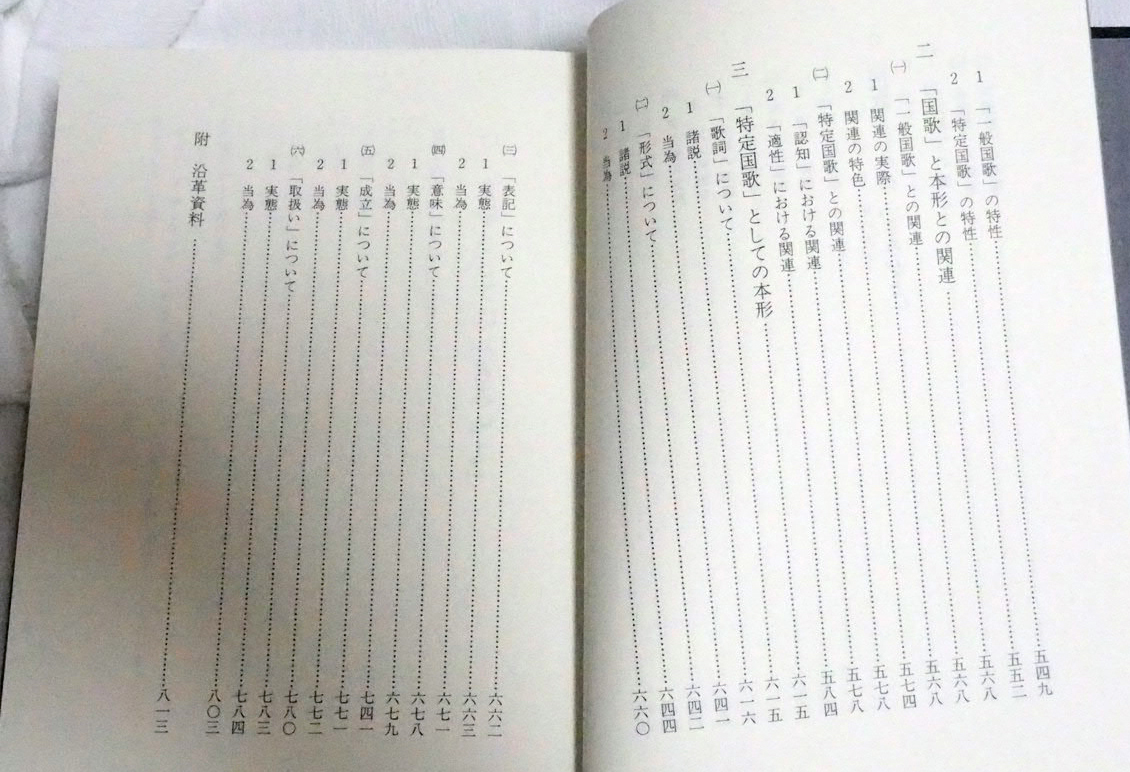 1 「一般国歌」の特性……五四九
2 「特定国歌」の特性……五五二
二 「国歌」と本形との関連……五六八
㈠ 「一般国歌」との関連……五六八
1 関連の実際……五六八
2 関連の特色……五七四
㈡ 「特定国歌」との関連……五七八
1 「認知」における関連……五七八
2 「適性」における関連……五八四
三 「特定国歌」としての本形……六一五
㈠ 「歌詞」について……六一五
1 諸説……六一六
2 当為……六四一
㈡ 「形式」について……六四二
1 諸説……六四四
2 当為……六六〇
㈢ 「表記」について……六六二
1 実態……六六三
2 当為……六七一
㈣ 「意味」について……六七八
1 実態……六七九
2 当為……七四一
㈤ 「成立」について……七七一
1 実態……七七二
2 当為……七八〇
㈥ 「取扱い」について……七八三
1 実態……七八四
2 当為……八〇三
附 沿革資料……八一三